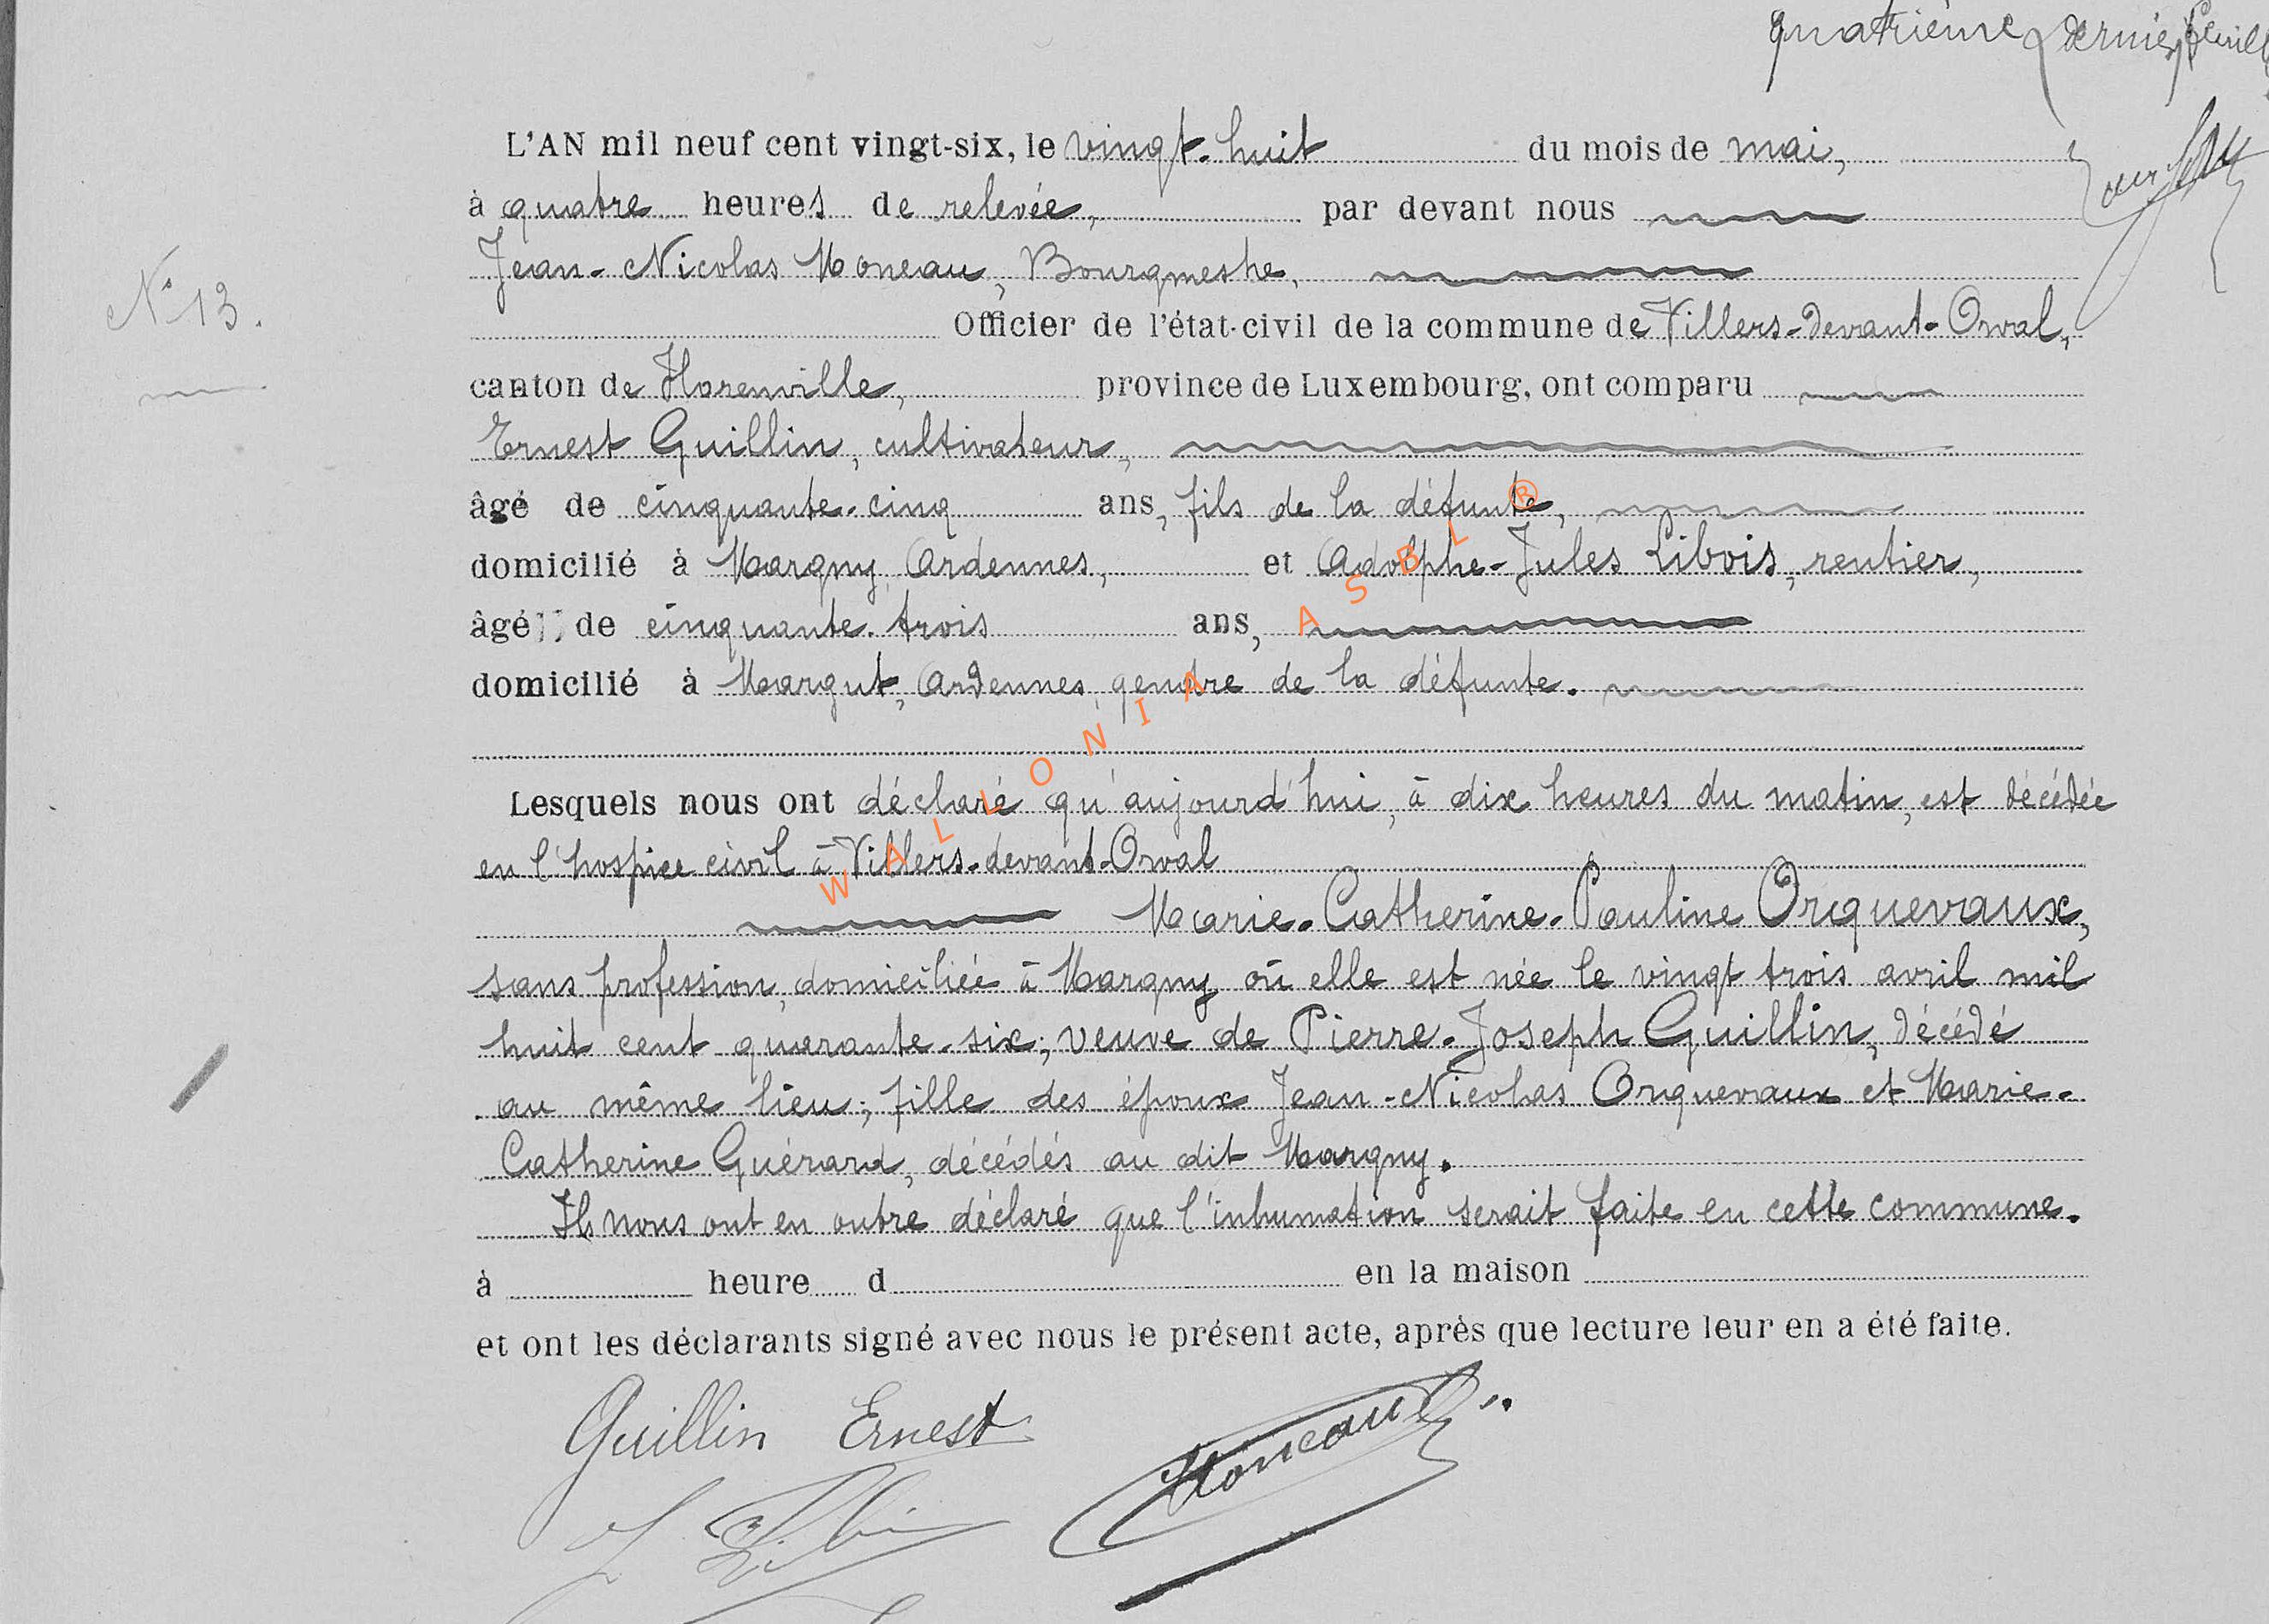 quatrième & dernier feuillet
L'AN mil neuf cent vingt-six, le vingt-huit du mois de mai,
à quatre heures de relevée, par devant nous
Jean-Nicolas Moneau, Bourgmestre,
N° 13.
Officier de l'état-civil de la commune de Villers-devant-Orval,
canton de Florenville, province de Luxembourg, ont comparu
Ernest Guillin, cultivateur,
âgé de cinquante-cinq ans, fils de la défunte,
domicilié à Margny, Ardennes, et Adolphe-Jules Libois, rentier,
âgé de cinquante-trois ans,
domicilié à Margut, Ardennes, gendre de la défunte.
Lesquels nous ont déclaré qu'aujourd'hui, à dix heures du matin, est décédée
en l'hospice civil à Villers-devant-Orval
Marie-Catherine-Pauline Orquevaux,
sans profession, domiciliée à Margny où elle est née le vingt trois avril mil
huit cent quarante-six; veuve de Pierre-Joseph Guillin, décédé
au même lieu; fille des époux Jean-Nicolas Orquevaux et Marie-
Catherine Guérard, décédés au dit Margny.
Ils nous ont en outre déclaré que l'inhumation serait faite en cette commune.
à heure d en la maison
et ont les déclarants signé avec nous le présent acte, après que lecture leur en a été faite.
Guillin Ernest
Moneau
WALLONIA ASBL ®